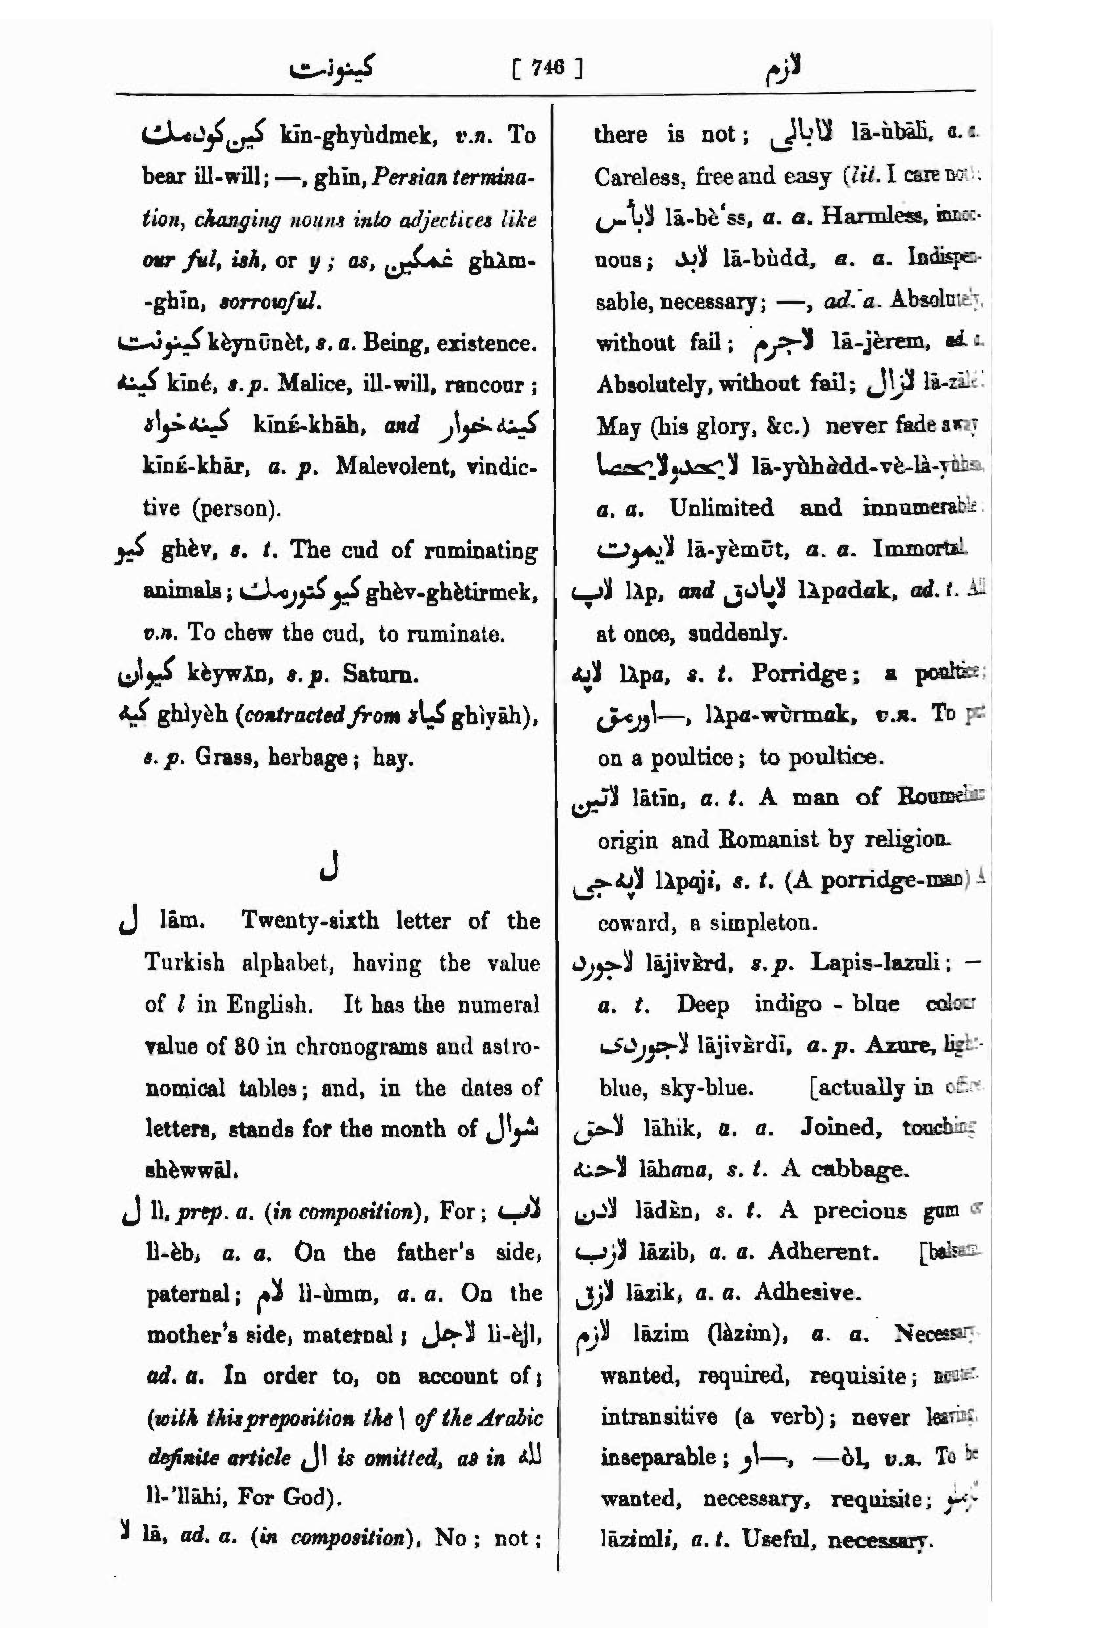 كينونت [ 746 ] لازم
كين كودمك kīn-ghyùdmek, v.n. To
bear ill-will; —, ghīn, Persian termina-
tion, changing nouns into adjectives like
our ful, ish, or y; as, غمكين ghàm-
-ghīn, sorrowful.
كينونت kèynūnèt, s. a. Being, existence.
كينه kīné, s.p. Malice, ill-will, rancour;
كينه خواه kīné-khāh, and كينه خوار
kīné-khār, a. p. Malevolent, vindic-
tive (person).
كيو ghèv, s. t. The cud of ruminating
animals; كيو كتورمك ghèv-ghètirmek,
v.n. To chew the cud, to ruminate.
كيوان kèywān, s. p. Saturn.
كيه ghìyèh (contracted from كياه ghìyāh),
s. p. Grass, herbage; hay.
ل
ل lām. Twenty-sixth letter of the
Turkish alphabet, having the value
of l in English. It has the numeral
value of 30 in chronograms and astro-
nomical tables; and, in the dates of
letters, stands for the month of شوال
shèwwāl.
ل lì, prep. a. (in composition), For; لاب
lì-èb, a. a. On the father's side,
paternal; لام lì-ùmm, a. a. On the
mother's side, maternal; لاجل li-èjl,
ad. a. In order to, on account of;
(with this preposition the ا of the Arabic
definite article ال is omitted, as in لله
lì-'llāhi, For God).
لا lā, ad. a. (in composition), No; not;
there is not; لاابالى lā-ùbālī, a. a.
Careless, free and easy (lit. I care not);
لابأس lā-bè'ss, a. a. Harmless, innoc-
nous; لابد lā-bùdd, a. a. Indispen-
sable, necessary; —, ad. a. Absolutely,
without fail; لاجرم lā-jèrem, ad. a.
Absolutely, without fail; لازال lā-zāle
May (his glory, &c.) never fade away
لايحدولايحصا lā-yùhàdd-vè-là-yùhsa,
a. a. Unlimited and innumerable.
لايموت lā-yèmūt, a. a. Immortal.
لاپ làp, and لاپادق làpadak, ad. t. All
at once, suddenly.
لاپه làpa, s. t. Porridge; a poultice;
—اورمق, làpa-wùrmak, v.n. To put
on a poultice; to poultice.
لاتين lātīn, a. t. A man of Roumelian
origin and Romanist by religion.
لاپه جى làpaji, s. t. (A porridge-man) A
coward, a simpleton.
لاجورد lājivèrd, s.p. Lapis-lazuli; —
a. t. Deep indigo - blue colour
لاجوردى lājivèrdī, a. p. Azure, light-
blue, sky-blue. [actually in office
لاحق lāhik, a. a. Joined, touching
لاحنه lāhana, s. t. A cabbage.
لادن lādèn, s. t. A precious gum or
لازب lāzib, a. a. Adherent. [balsam.
لازق lāzik, a. a. Adhesive.
لازم lāzim (làzim), a. a. Necessary,
wanted, required, requisite; neuter,
intransitive (a verb); never leaving,
inseparable; —او, —òl, v.n. To be
wanted, necessary, requisite;
lāzimli, a. t. Useful, necessary.